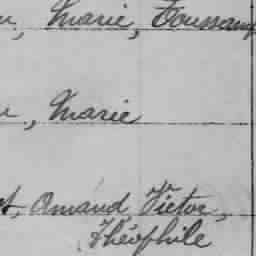 , Marie, Toussaint
, Marie
, Amand, Victor,
Théophile